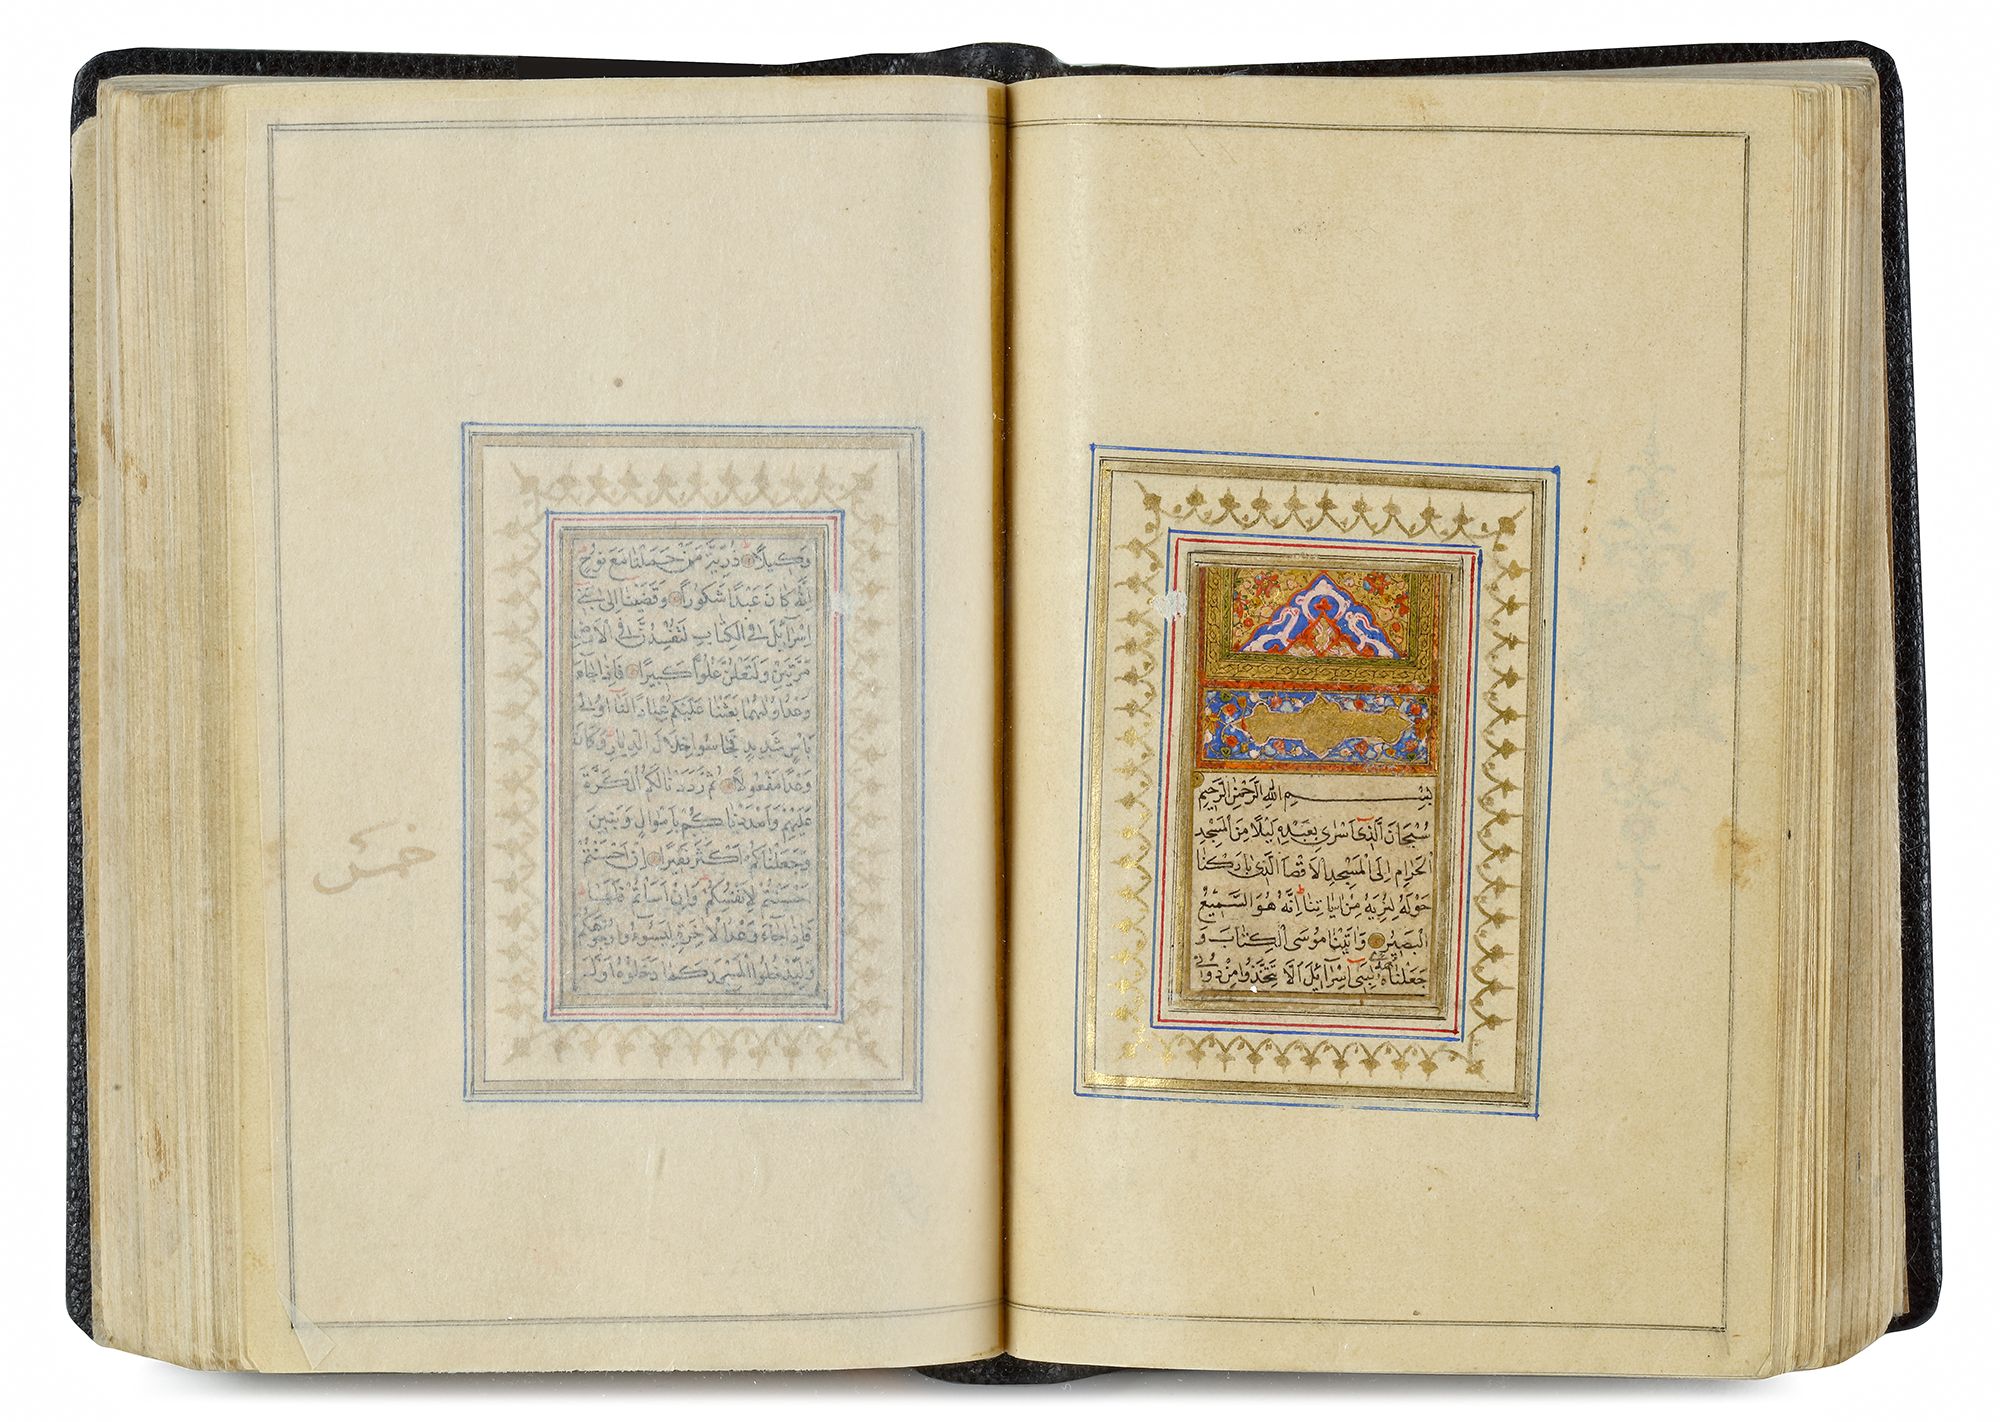 بِسْمِ اللهِ الرَّحْمٰنِ الرَّحِيْمِ
سُبْحَانَ الَّذِي اَسْرٰى بِعَبْدِهِ لَيْلًا مِنَ الْمَسْجِدِ
الْحَرَامِ اِلَى الْمَسْجِدِ الْاَقْصَا الَّذِي بَارَكْنَا
حَوْلَهُ لِنُرِيَهُ مِنْ اٰيَاتِنَا اِنَّهُ هُوَ السَّمِيْعُ
الْبَصِيْرُ وَاٰتَيْنَا مُوسَى الْكِتَابَ وَ
جَعَلْنَاهُ هُدًى لِبَنِي اِسْرَآئِيْلَ اَلَّا تَتَّخِذُوا مِنْ دُوْنِي
وَكِيْلًا ذُرِّيَّةَ مَنْ حَمَلْنَا مَعَ نُوْحٍ
اِنَّهُ كَانَ عَبْدًا شَكُوْرًا وَقَضَيْنَا اِلٰى بَنِي
اِسْرَآئِيْلَ فِي الْكِتَابِ لَتُفْسِدُنَّ فِي الْاَرْضِ
مَرَّتَيْنِ وَلَتَعْلُنَّ عُلُوًّا كَبِيْرًا فَاِذَا جَآءَ
وَعْدُ اُوْلٰيهُمَا بَعَثْنَا عَلَيْكُمْ عِبَادًا لَنَا اُوْلِي
بَاْسٍ شَدِيْدٍ فَجَاسُوا خِلَالَ الدِّيَارِ وَكَانَ
وَعْدًا مَفْعُوْلًا ثُمَّ رَدَدْنَا لَكُمُ الْكَرَّةَ
عَلَيْهِمْ وَاَمْدَدْنَاكُمْ بِاَمْوَالٍ وَبَنِيْنَ
وَجَعَلْنَاكُمْ اَكْثَرَ نَفِيْرًا اِنْ اَحْسَنْتُمْ
اَحْسَنْتُمْ لِاَنْفُسِكُمْ وَاِنْ اَسَاْتُمْ فَلَهَا
فَاِذَا جَآءَ وَعْدُ الْاٰخِرَةِ لِيَسُوْءُوا وُجُوْهَكُمْ
وَلِيَدْخُلُوا الْمَسْجِدَ كَمَا دَخَلُوْهُ اَوَّلَ